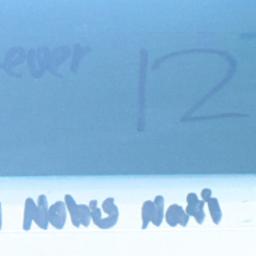 ever 12
Nobis Nati